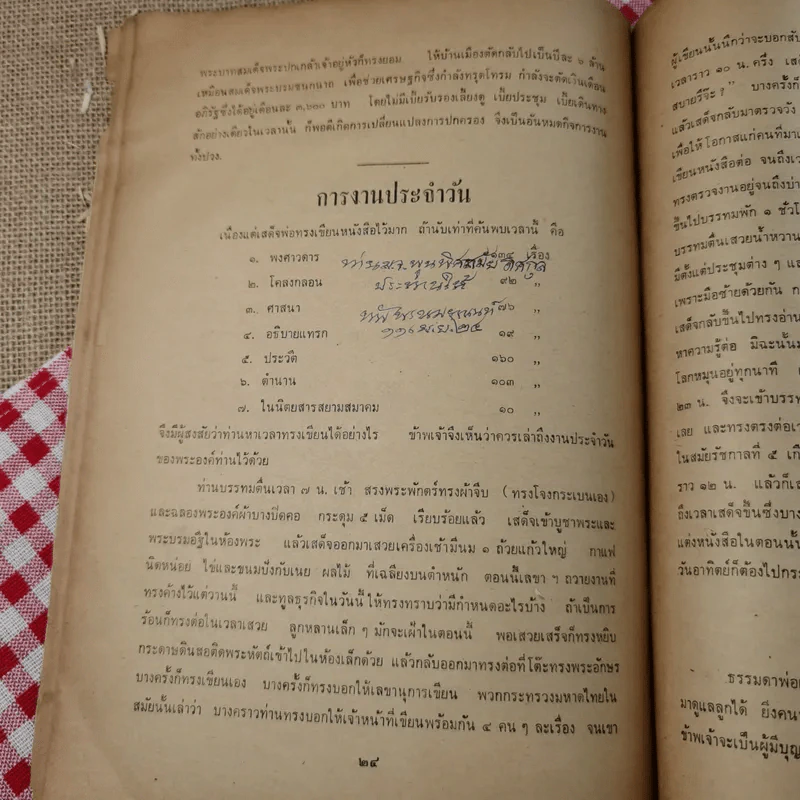 พระบาทสมเด็จพระปกเกล้าเจ้าอยู่หัวก็ทรงยอม ให้บ้านเมืองตัดกลับไปเป็นปีละ ๖ ล้าน
เหมือนสมเด็จพระบรมชนกนาถ เพื่อช่วยเศรษฐกิจซึ่งกำลังทรุดโทรม กำลังจะตัดเงินเดือน
อภิรัฐซึ่งได้อยู่เดือนละ ๓,๖๐๐ บาท โดยไม่มีเบี้ยรับรองเลี้ยงดู เบี้ยประชุม เบี้ยเดินทาง
สักอย่างเดียวในเวลานั้น ก็พอดีเกิดการเปลี่ยนแปลงการปกครอง จึงเป็นอันหมดกิจการงาน
ทั้งปวง.
การงานประจำวัน
เนื่องแต่เสด็จพ่อทรงเขียนหนังสือไว้มาก ถ้านับเท่าที่ค้นพบเวลานี้ คือ
๑. พงศาวดาร ๑๓๔ เรื่อง
ท่าน ม.จ. พูนพิศมัย ดิศกุล
๒. โคลงกลอน ๙๒ ,,
ประทานให้
๓. ศาสนา ๗๖ ,,
๔. อธิบายแทรก ๑๙ ,,
๑๑ เม.ย. ๒๕
๕. ประวัติ ๑๖๐ ,,
๖. ตำนาน ๑๐๓ ,,
๗. ในนิตยสารสยามสมาคม ๑๐ ,,
จึงมีผู้สงสัยว่าท่านหาเวลาทรงเขียนได้อย่างไร ข้าพเจ้าจึงเห็นว่าควรเล่าถึงงานประจำวัน
ของพระองค์ท่านไว้ด้วย
ท่านบรรทมตื่นเวลา ๗ น. เช้า สรงพระพักตร์ทรงผ้าจีบ (ทรงโจงกระเบนเอง)
และฉลองพระองค์ผ้าบางปิดคอ กระดุม ๕ เม็ด เรียบร้อยแล้ว เสด็จเข้าบูชาพระและ
พระบรมอัฐิในห้องพระ แล้วเสด็จออกมาเสวยเครื่องเช้ามีนม ๑ ถ้วยแก้วใหญ่ กาแฟ
นิดหน่อย ไข่และขนมปังกับเนย ผลไม้ ที่เฉลียงบนตำหนัก ตอนนี้เลขา ฯ ถวายงานที่
ทรงค้างไว้แต่วานนี้ และทูลธุรกิจในวันนี้ให้ทรงทราบว่ามีกำหนดอะไรบ้าง ถ้าเป็นการ
ร้อนก็ทรงต่อในเวลาเสวย ลูกหลานเล็ก ๆ มักจะเฝ้าในตอนนี้ พอเสวยเสร็จก็ทรงหยิบ
กระดาษดินสอติดพระหัตถ์เข้าไปในห้องเล็กด้วย แล้วกลับออกมาทรงต่อที่โต๊ะทรงพระอักษร
บางครั้งก็ทรงเขียนเอง บางครั้งก็ทรงบอกให้เลขานุการเขียน พวกกระทรวงมหาดไทยใน
สมัยนั้นเล่าว่า บางคราวท่านทรงบอกให้เจ้าหน้าที่เขียนพร้อมกัน ๔ คน ๆ ละเรื่อง จนเขา
๒๔
ผู้เขียนนั้นนึกว่าจะบอกสับ
เวลาราว ๑๐ น. ครึ่ง เส
สบายรึจ๊ะ ?” บางครั้งก็
แล้วเสด็จกลับมาตรวจวัง
เพื่อให้โอกาสแก่คนที่มา
เขียนหนังสือต่อ จนถึงเว
ทรงตรวจงานอยู่จนถึงบ่า
ขึ้นไปบรรทมพัก ๑ ชั่วโ
บรรทมตื่นเสวยน้ำหวาน
มีตั้งแต่ประชุมต่าง ๆ แล
เพราะมือซ้ายด้วยกัน ก
เสด็จกลับขึ้นไปทรงอ่าน
หาความรู้ต่อ มิฉะนั้นม
โลกหมุนอยู่ทุกนาที
๒๓ น. จึงจะเข้าบรรท
เลย และทรงตรงต่อเว
ในสมัยรัชกาลที่ ๕ เก
ราว ๑๒ น. แล้วก็เส
ถึงเวลาเสด็จขึ้นซึ่งบาง
แต่งหนังสือในตอนนั้น
วันอาทิตย์ก็ต้องไปกระ
ธรรมดาพ่อ
มาดูแลลูกได้ ยิ่งคน
ข้าพเจ้าจะเป็นผู้มีบุญ